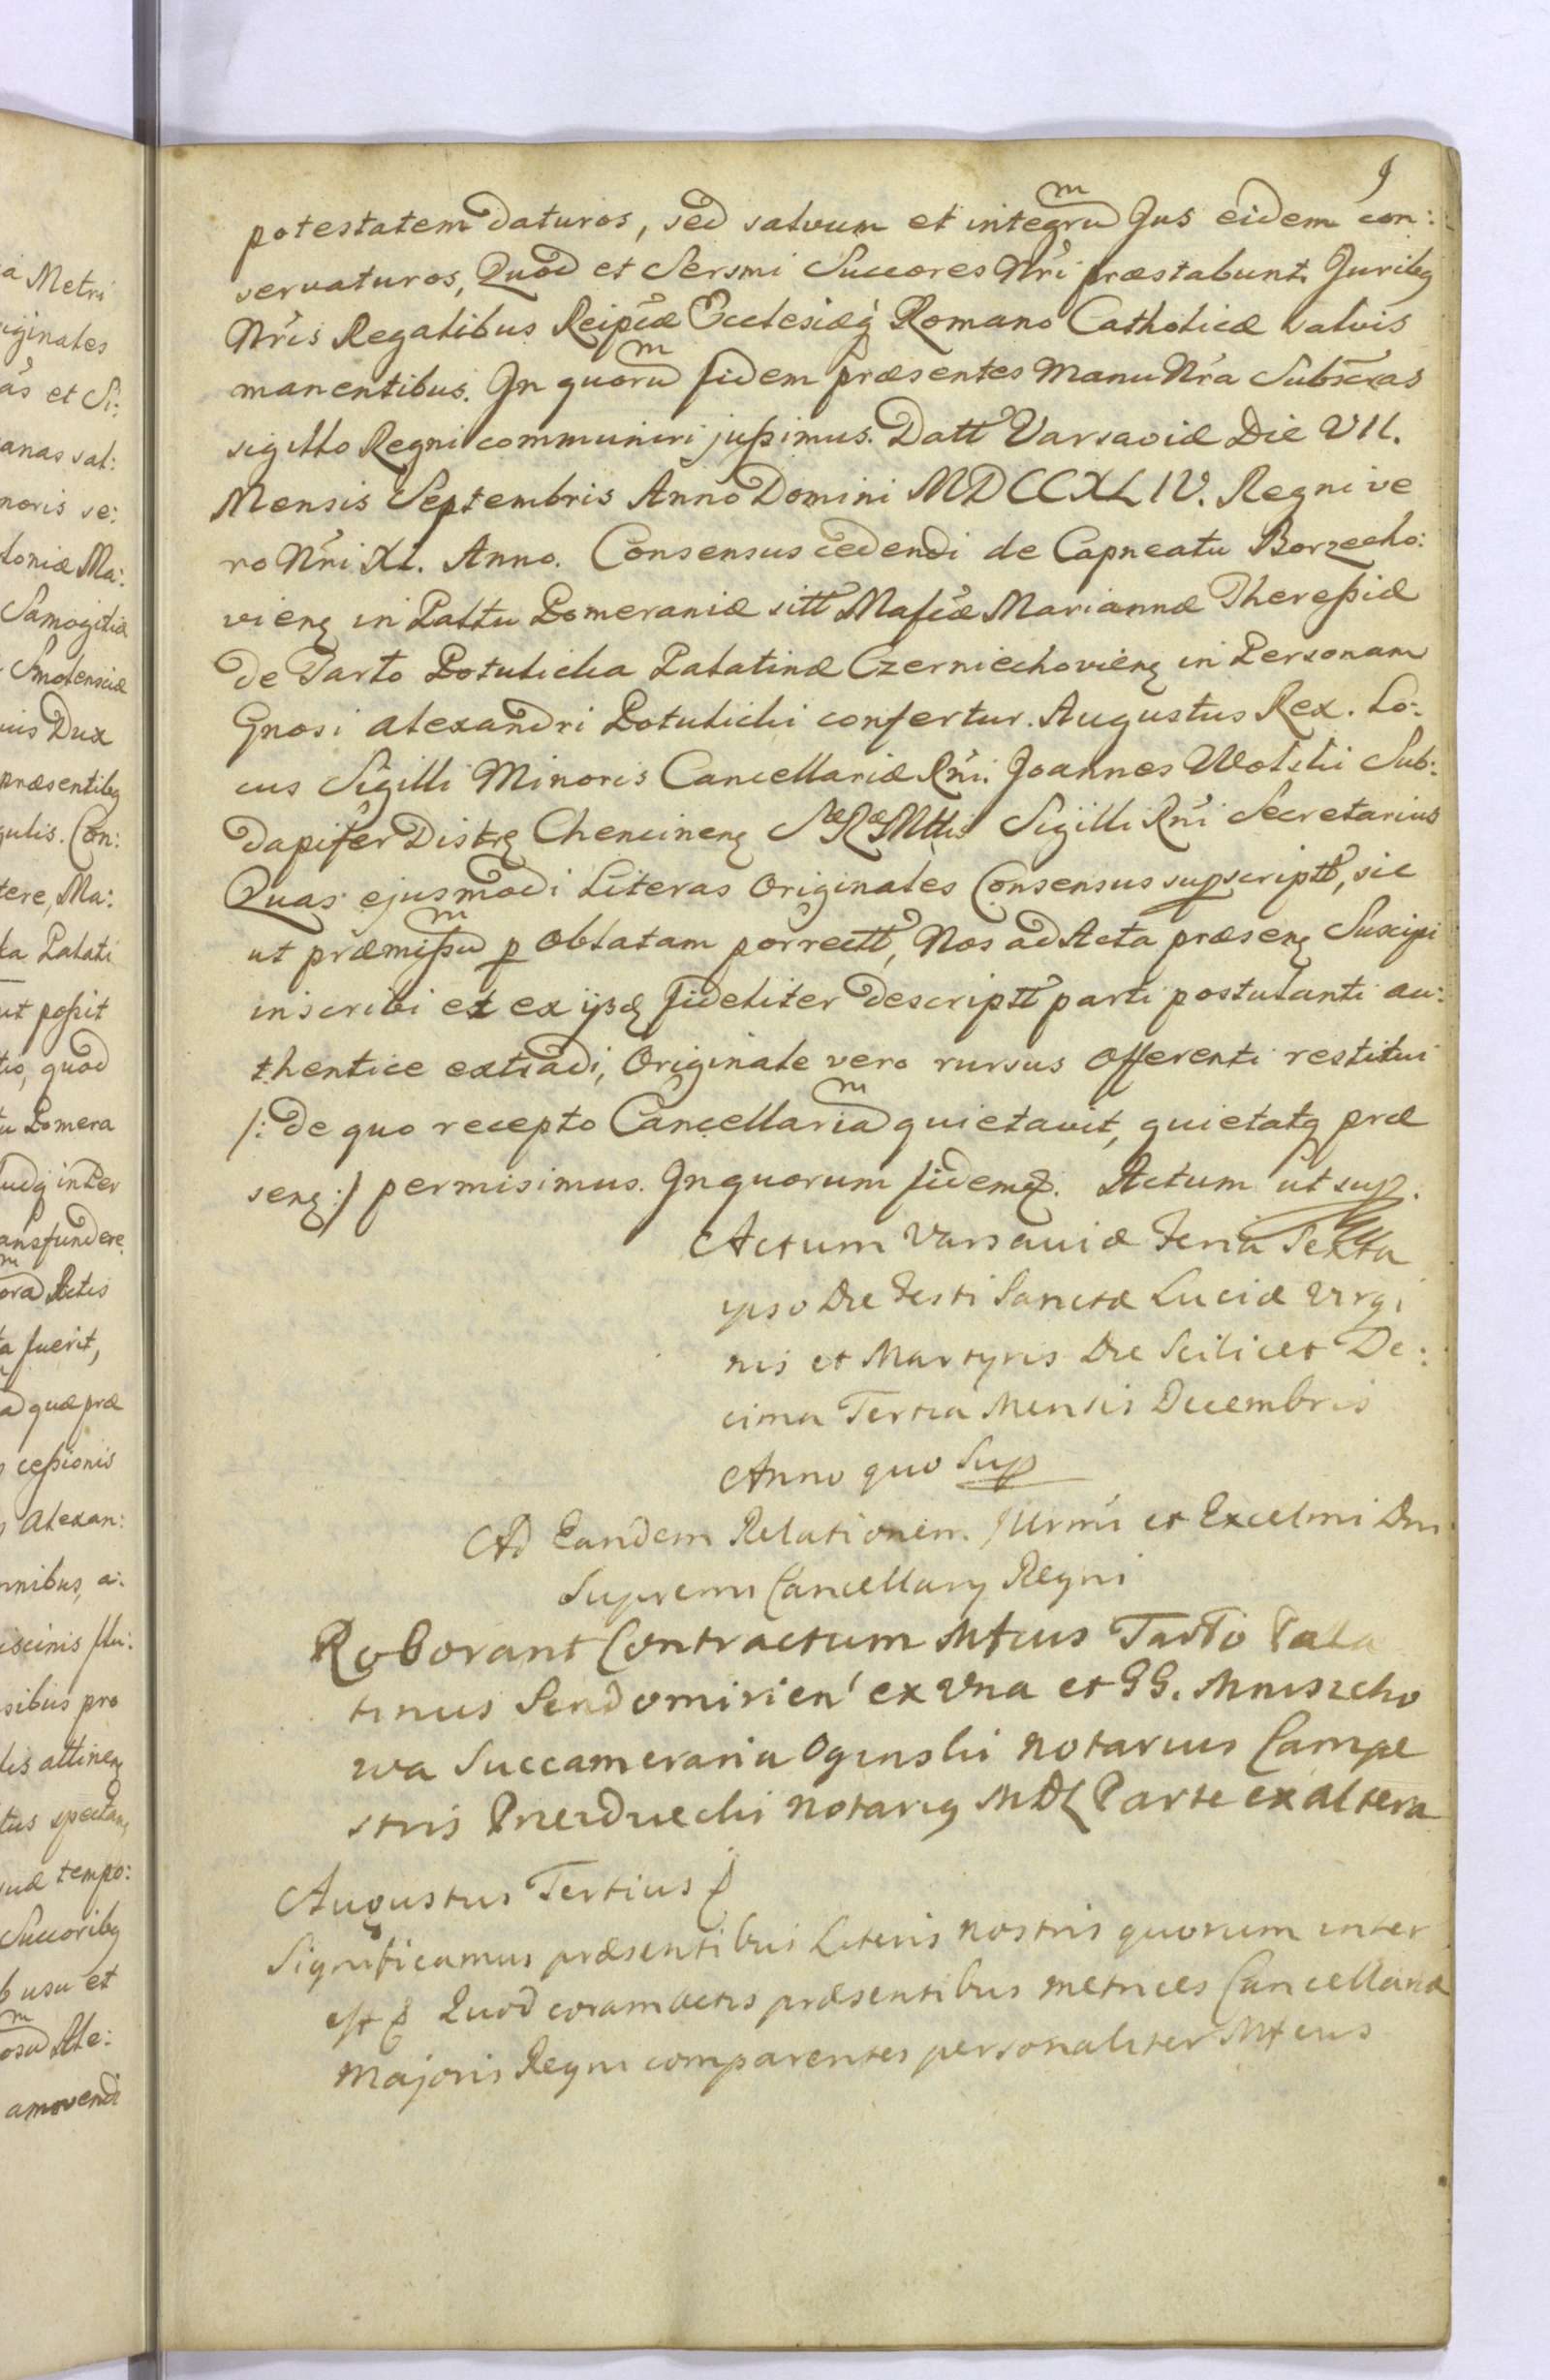 9
potestatem daturos, sed salvum et integrum Jus eidem con:
servaturos, Quod et Sersmi Succores Nři præstabunt. Juribq
Nřis Regalibus Reipcæ Ecclesiæq Romano Catholicæ salvis
manentibus. In quorum fidem præsentes Manu Nřa Subscras
sigillo Regni communiri jußimus. Datt Varsaviæ Die VII.
Mensis Septembris Anno Domini MDCCXLIV. Regni ve
ro Nři XI. Anno. Consensus cedendi de Capneatu Borzecho:
vienę in Paltu Pomeraniæ sitt Maficæ Mariannæ Thereßiæ
de Tarto Potulicka Palatinæ Czerniechovienę in Personam
Gnosi Alexandri Potulicki confertur. Augustus Rex. Lo:
cus Sigilli Minoris Cancellariæ Rñi. Joannes Wolski Sub:
dapifer Distrę Chencinenę SæRæMttis Sigilli Rñi Secretarius
Quas ejusmodi Literas Originales Consensus supscriptt, sic
ut præmißum p Oblatam porrectt, Nos ad Acta præsenę Suscipi
inscribi et ex ijsdę fideliter descriptt parti postulanti au:
thentice extradi, Originale vero rursus Offerenti restitui
/: de quo recepto Cancellariam quietavit, quietatq præ
senę :/ permisimus. In quorum fidem &. Actum ut sup.
Actum Varsaviæ Feria Sexta
ipso Die Festi Sanctæ Luciæ Virgi
nis et Martyris Die Scilicet De:
cima Tertia Mensis Decembris
Anno quo Sup
Ad Eandem Relationem Illrmi et Excelmi Dni
Supremi Cancellarij Regni
Roborant Contractum Mfcus Tarło Pala
tinus Sendomirien' ex Una et GG. Mniszcho
wa Succameraria Oginski Notarius Campe
stris Przezdziecki Notarig MDL Parte ex altera
Augustus Tertius &
Significamus præsentibus Literis nostris quorum inter
est & Quod coram actis præsentibus metrices Cancellariæ
Majoris Regni comparentes personaliter Mfcus